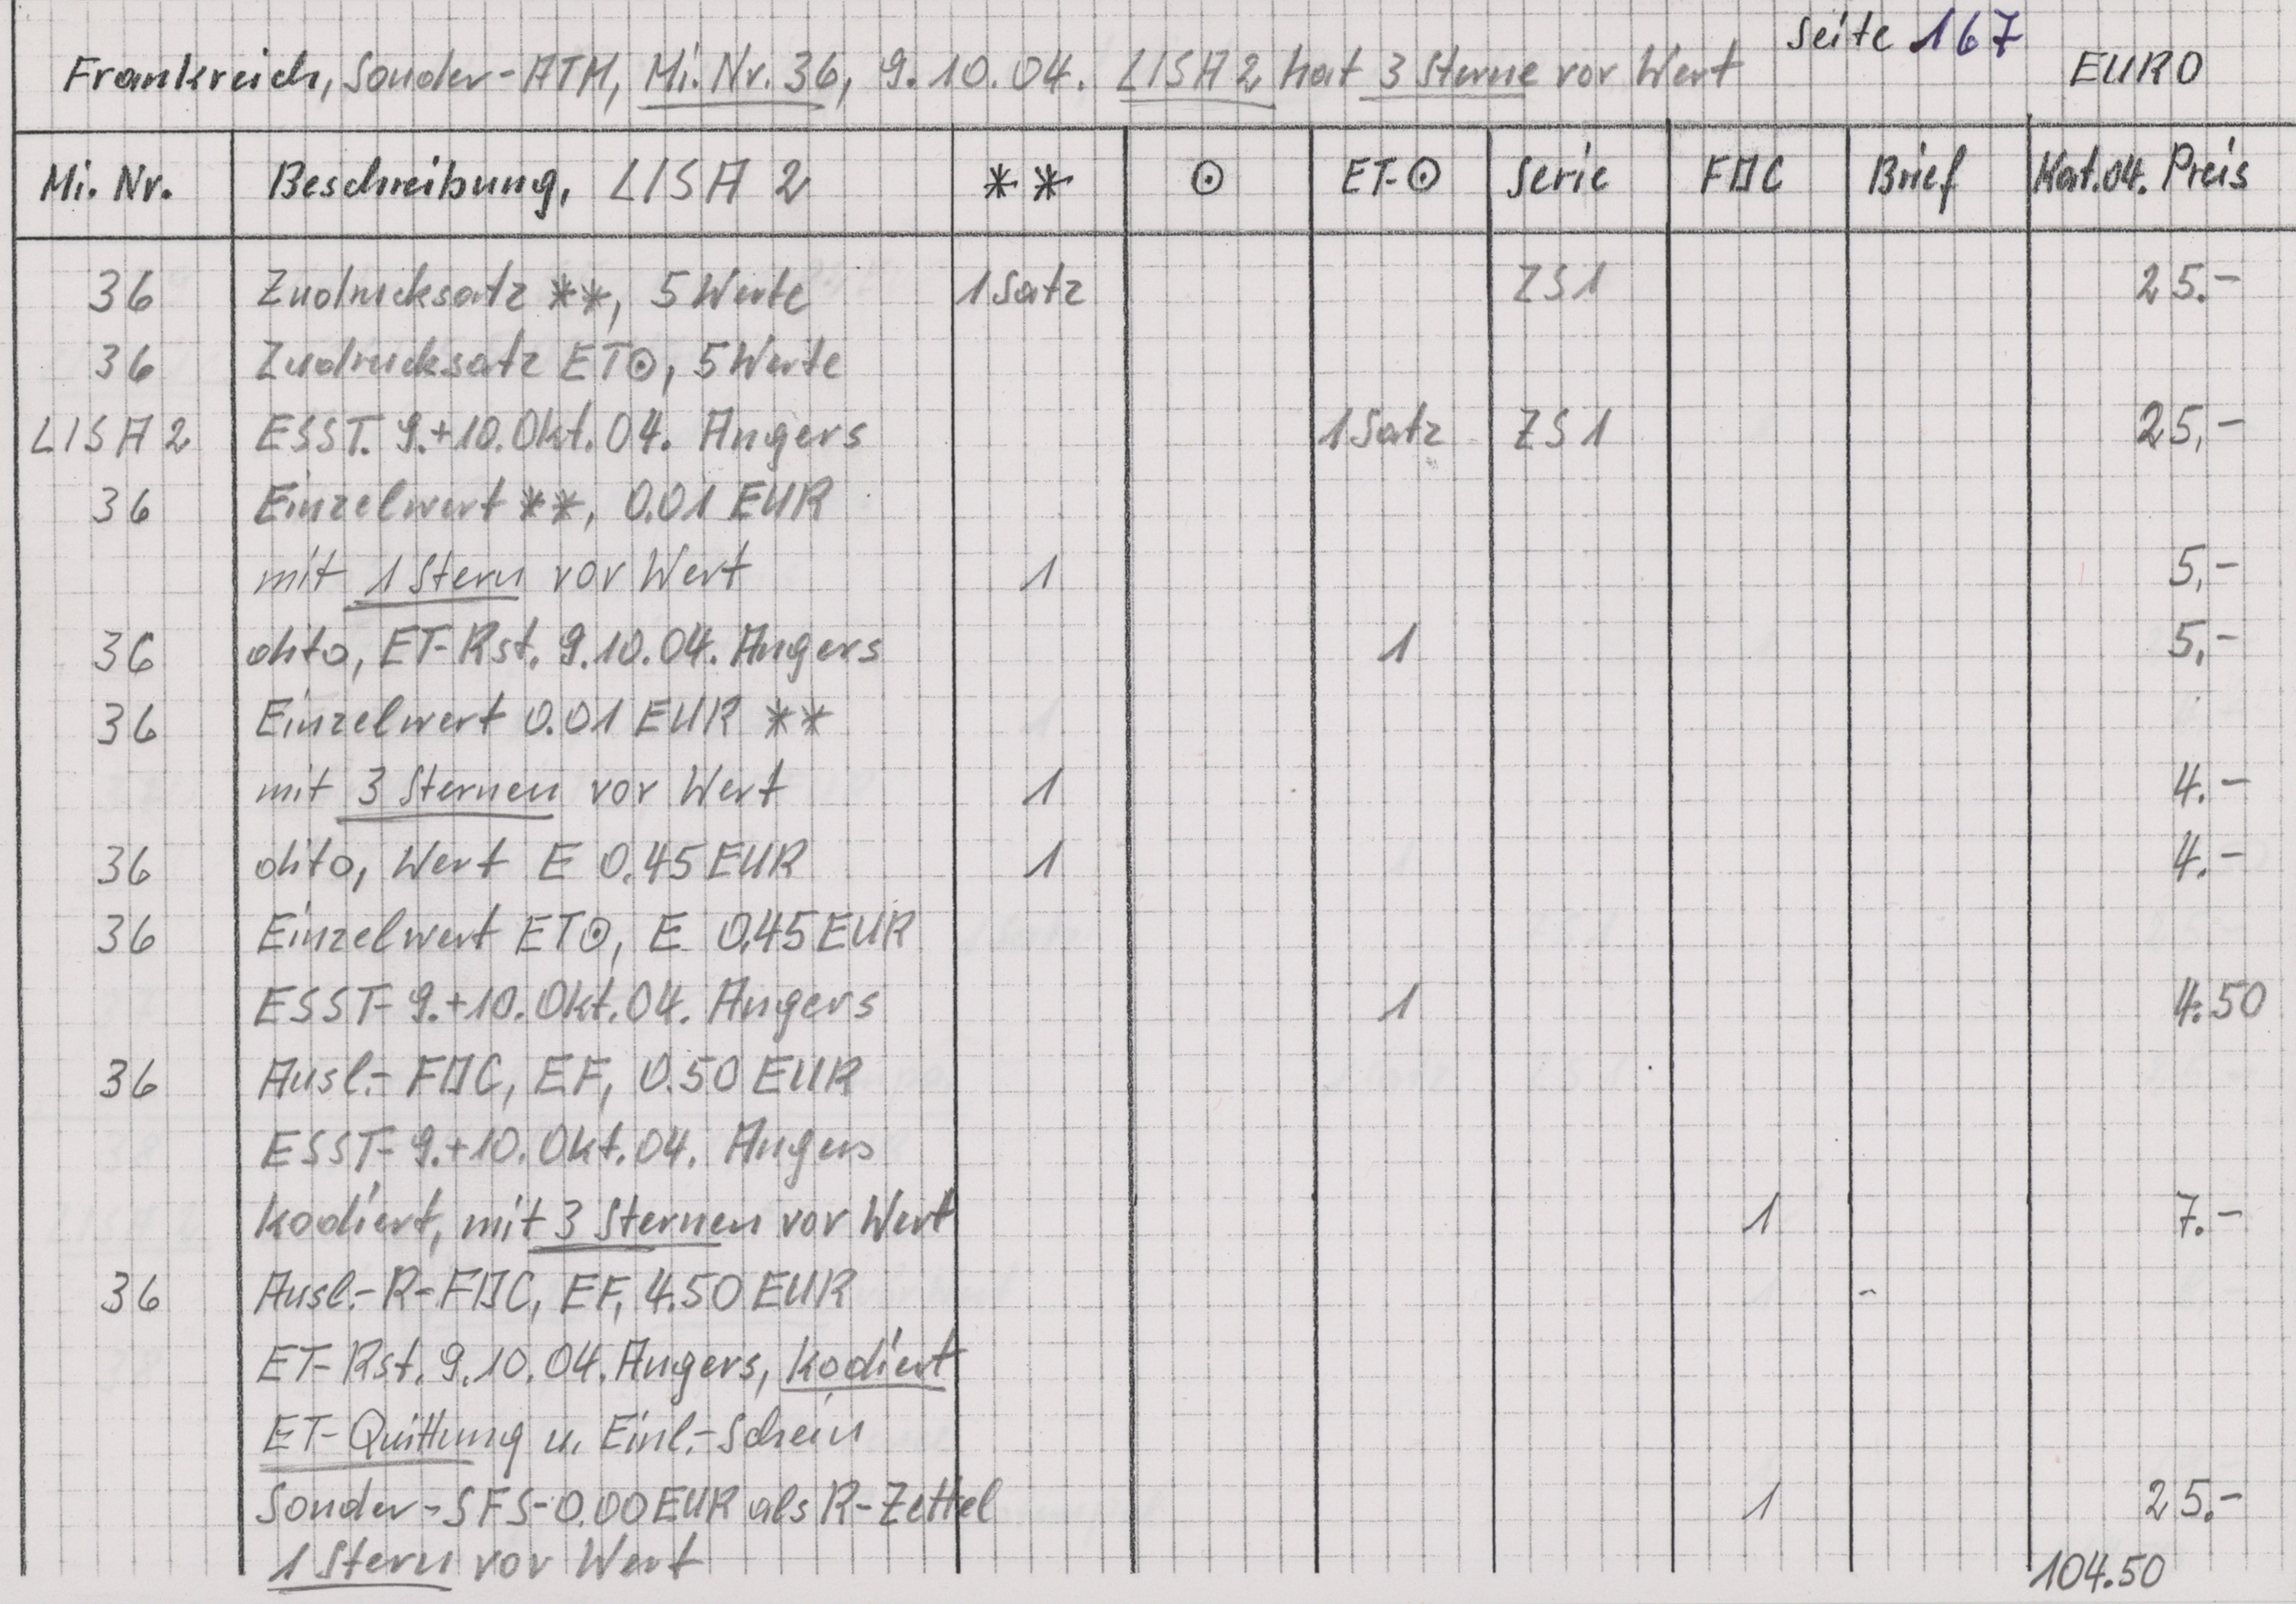 Seite 167
Frankreich, Sonder-ATM, Mi. Nr. 36, 9.10.04. LISA 2 hat 3 Sterne vor Wert EURO
Mi. Nr. Beschreibung, LISA 2 ** ⊙ ET-⊙ Serie FDC Brief Kat.04. Preis
36 Zudrucksatz **, 5 Werte 1 Satz ZS1 25.-
36 Zudrucksatz ET⊙, 5 Werte
LISA 2 ESST. 9.+10.Okt.04. Angers 1 Satz ZS1 25,-
36 Einzelwert **, 0.01 EUR
mit 1 Stern vor Wert 1 5,-
36 dito, ET-Rst. 9.10.04. Angers 1 5,-
36 Einzelwert 0.01 EUR **
mit 3 Sternen vor Wert 1 4.-
36 dito, Wert E 0.45 EUR 1 4.-
36 Einzelwert ET⊙, E 0.45 EUR
ESST- 9.+10.Okt.04. Angers 1 4.50
36 Ausl.- FDC, EF, 0.50 EUR
ESST- 9.+10.Okt.04. Angers
kodiert, mit 3 Sternen vor Wert 1 7.-
36 Ausl.-R-FDC, EF, 4.50 EUR
ET-Rst. 9.10.04. Angers, kodiert
ET-Quittung u. Einl.-Schein
Sonder-SFS-0.00 EUR als R-Zettel 1 25.-
1 Stern vor Wert 104.50